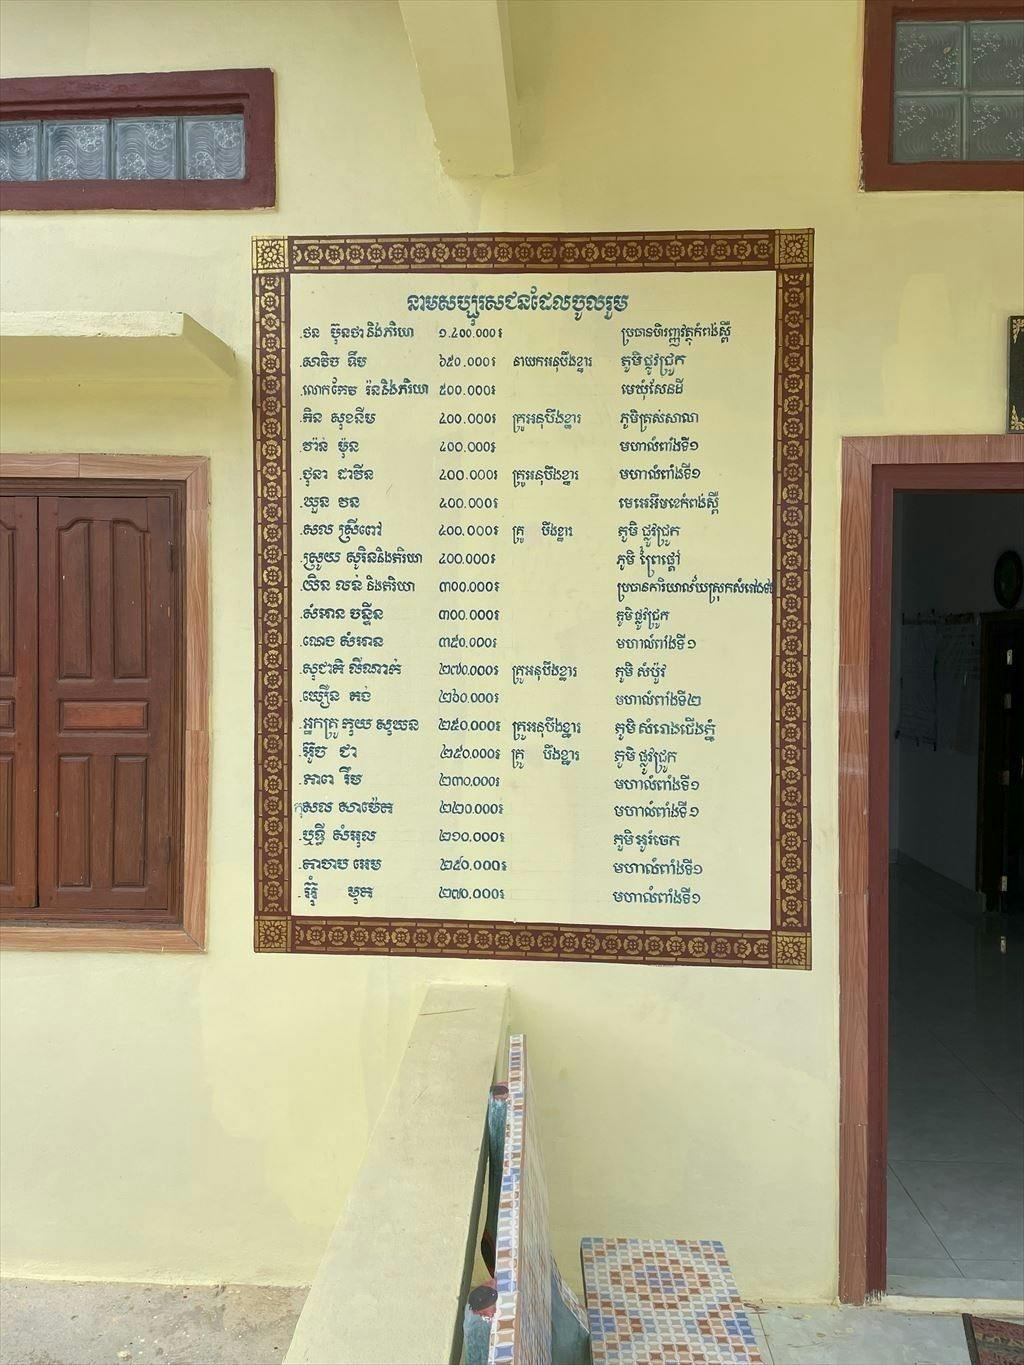 នាមសប្បុរសជនដែលចូលរួម
.ផន ប៊ុនថានិងភរិយា ១.៤០០.០០០៛ ប្រធានហិរញ្ញវត្ថុកំពង់ស្ពឺ
.សារិច ទឹម ៦៥០.០០០៛ នាយកអនុបឹងខ្នារ ភូមិ ផ្លូវជ្រូក
.លោកកែត រ៉ននិងភរិយា ៥០០.០០០៛ មេឃុំសែនដី
.កិន សុខនីម ៤០០.០០០៛ គ្រូអនុបឹងខ្នារ ភូមិគ្រស់សាលា
.វ៉ាន់ ម៉ុន ៤០០.០០០៛ មហាលំពាំងទី១
.ជុនា ដាវីន ៤០០.០០០៛ គ្រូអនុបឹងខ្នារ មហាលំពាំងទី១
.ឃួន វន ៤០០.០០០៛
.សល ស្រីពៅ ៤០០.០០០៛ គ្រូ បឹងខ្នារ ភូមិ ផ្លូវជ្រូក
.ស្រួយ សូរិននិងភរិយា ៤០០.០០០៛ ភូមិ ព្រៃផ្តៅ
.ឃិន លន់ និងភរិយា ៣០០.០០០៛ ប្រធានការិយាល័យស្រុក
.សំអាន ចន្ទីន ៣០០.០០០៛ ភូមិ ផ្លូវជ្រូក
.ណេង សំអាន ៣៥០.០០០៛ មហាលំពាំងទី១
.សុជាតិ លីណាក់ ២៧០.០០០៛ គ្រូអនុបឹងខ្នារ ភូមិ សំប៉ូវ
.ឃ្យឿន គង់ ២៦០.០០០៛ មហាលំពាំងទី២
.អ្នកគ្រូ កុយ សុឃន ២៥០.០០០៛ គ្រូអនុបឹងខ្នារ ភូមិ សំរោងជើងភ្នំ
.អ៊ូច ជា ២៥០.០០០៛ គ្រូ បឹងខ្នារ ភូមិ ផ្លូវជ្រូក
.ភាព រឹម ២៣០.០០០៛ មហាលំពាំងទី១
កុសល សាម៉េត ២២០.០០០៛ មហាលំពាំងទី១
.ឫទ្ធី សំអុល ២១០.០០០៛ ភូមិ អូរចែក
.តាចាប អេម ២៥០.០០០៛ មហាលំពាំងទី១
.អ៊ុំ មុត ២៧០.០០០៛ មហាលំពាំងទី១